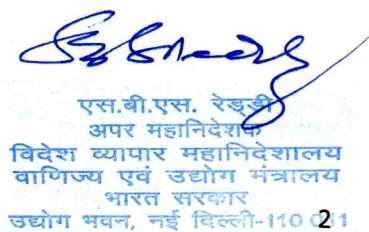 एस.बी.एस. रेड्डी
अपर महानिदेशक
विदेश व्यापार महानिदेशालय
वाणिज्य एवं उद्योग मंत्रालय
भारत सरकार
उद्योग भवन, नई दिल्ली-110 011
2